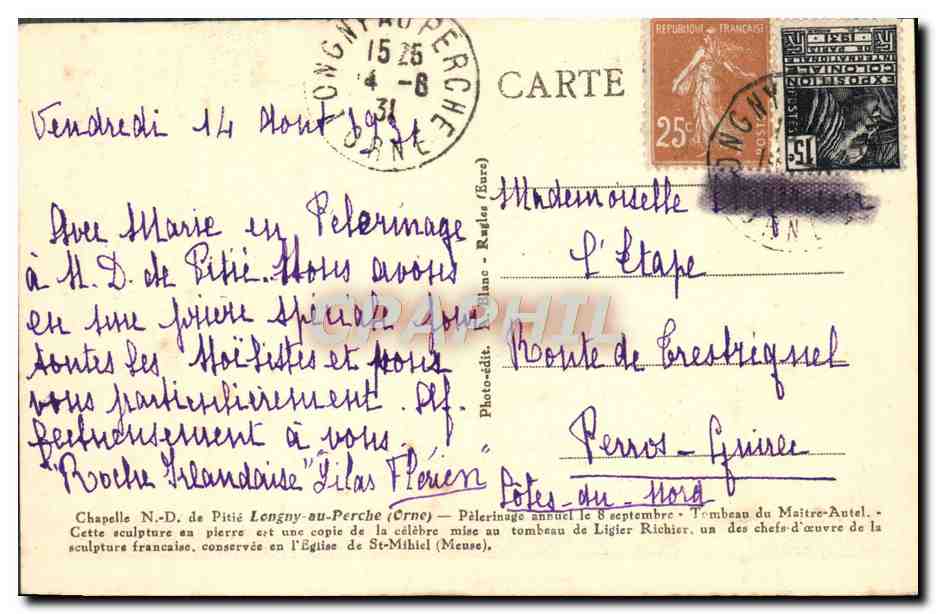 LONGNY AU PERCHE
15 25
14 -8
31
ORNE
CARTE
REPUBLIQUE FRANÇAISE
25c
POSTES
EXPOSITION
COLONIALE
INTERNATIONALE
DE PARIS
1931
POSTES
15c
Vendredi 14 Aout 1931
Avec Marie en Pelerinage
à N. D. de Pitié. Nous avons
eu une prière spéciale pour
toutes les Noëlistes et pour
vous particulièrement. Af-
fectueusement à vous.
"Roche Irlandaise" Lilas Flérien "
Photo-édit. Blanc - Rugles (Eure)
Mademoiselle
L'Etape
Route de Trestrignel
Perros-Guirec
Côtes-du-Nord
CARTAPHIL
Chapelle N.-D. de Pitié Longny-au-Perche (Orne) — Pèlerinage annuel le 8 septembre - Tombeau du Maître-Autel. -
Cette sculpture en pierre est une copie de la célèbre mise au tombeau de Ligier Richier, un des chefs-d'œuvre de la
sculpture française, conservée en l'Eglise de St-Mihiel (Meuse).